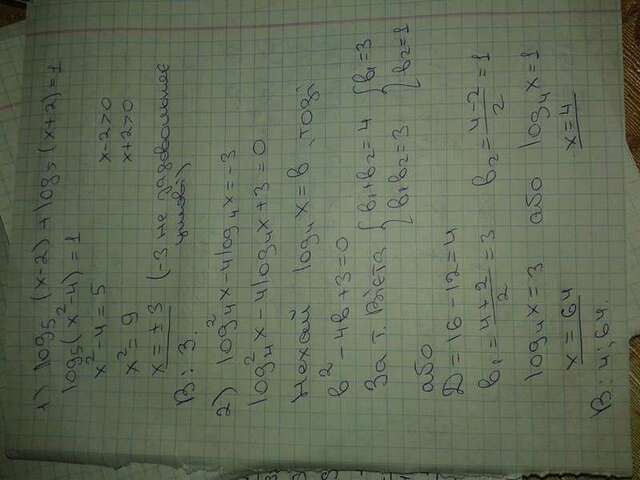 1) log₅ (x-2) + log₅ (x+2) = 1
log₅ (x² - 4) = 1
x² - 4 = 5 x-2>0
x² = 9 x+2>0
x = ± 3 (-3 не задовольняє умові)
В: 3.
2) log₄² x - 4 log₄ x = -3
log₄² x - 4 log₄ x + 3 = 0
Нехай log₄ x = в, тоді
в² - 4в + 3 = 0
За т. Вієта { в₁+в₂ = 4 { в₁ = 3
в₁в₂ = 3 в₂ = 1
або
D = 16 - 12 = 4
в₁ = (4+2)/2 = 3 в₂ = (4-2)/2 = 1
log₄ x = 3 або log₄ x = 1
x = 64 x = 4
В: 4; 64.